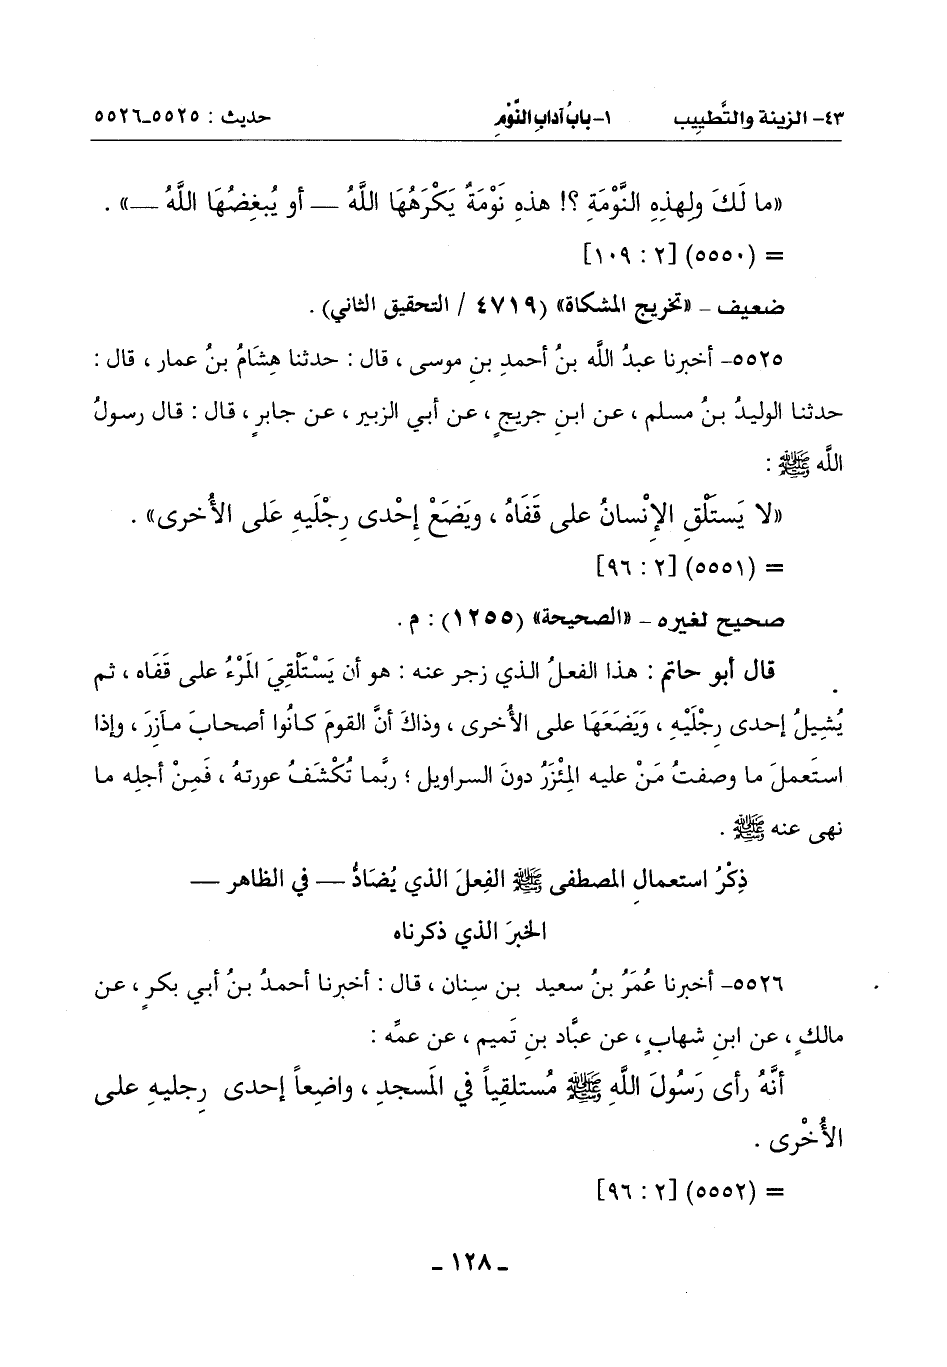 ٤٣- الزينة والتَّطييب ١- بابُ آدابِ النَّوْمِ حديث : ٥٥٢٥-٥٥٢٦
«ما لَكَ ولِهذِهِ النَّوْمَةِ ؟! هذهِ نَوْمَةٌ يَكْرَهُهَا اللَّهُ — أو يُبغِضُهَا اللَّهُ —» .
= (٥٥٥٠) [٢ : ١٠٩]
ضعيف - «تخريج المشكاة» (٤٧١٩ / التحقيق الثاني) .
٥٥٢٥- أخبرنا عبدُ اللَّه بنُ أحمدِ بنِ موسى ، قال : حدثنا هِشَامُ بنُ عمار ، قال :
حدثنا الوليدُ بنُ مسلم ، عن ابنِ جريجٍ ، عن أبي الزبير ، عن جابرٍ ، قال : قال رسولُ
اللَّه ﷺ :
«لا يَستَلْقِ الإنْسانُ على قَفَاهُ ، ويَضَعْ إِحْدى رِجْلَيهِ عَلى الأُخرى» .
= (٥٥٥١) [٢ : ٩٦]
صحيح لغيره - «الصحيحة» (١٢٥٥) : م .
قال أبو حاتم : هذا الفعلُ الذي زجر عنه : هو أن يَسْتَلْقِيَ المَرْءُ على قَفَاه ، ثم
يُشِيلُ إحدى رِجْلَيْهِ ، وَيَضَعَهَا على الأُخرى ، وذاكَ أنَّ القومَ كانُوا أصحابَ مآزرَ ، وإذا
استَعملَ ما وصفتُ مَنْ عليه المِئْزَرُ دونَ السراويل ؛ ربَّما تُكْشَفُ عورتهُ ، فَمِنْ أجلِه ما
نهى عنه ﷺ .
ذِكْرُ استعمالِ المصطفى ﷺ الفِعلَ الذي يُضَادُّ — في الظاهر —
الخبرَ الذي ذكرناه
٥٥٢٦- أخبرنا عُمَرُ بنُ سعيد بن سِنان ، قال : أخبرنا أحمدُ بنُ أبي بكرٍ ، عن
مالكٍ ، عن ابنِ شهابٍ ، عن عبَّاد بنِ تَميم ، عن عمِّه :
أنَّهُ رأى رَسُولَ اللَّهِ ﷺ مُستلقِياً في المَسجدِ ، واضِعاً إحدى رِجليهِ على
الأُخْرى .
= (٥٥٥٢) [٢ : ٩٦]
- ١٢٨ -